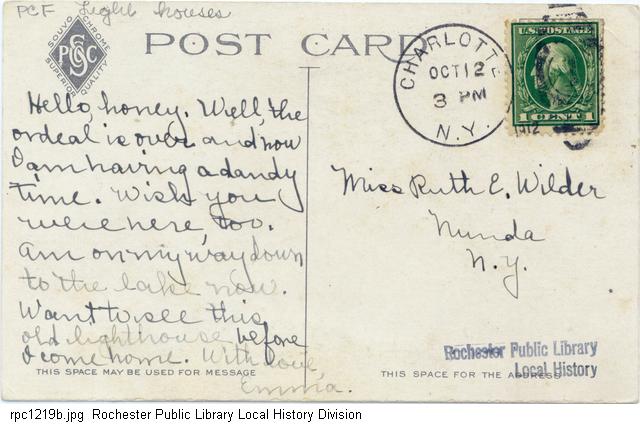 PCF Light houses
SOUVO CHROME
PCSC
SUPERIOR QUALITY
POST CARD
CHARLOTTE
OCT 12
3 PM
N.Y.
1912
U.S. POSTAGE
1 CENT 1
Hello, honey. Well, the
ordeal is over and now
I am having a dandy
time. Wish you
were here, too.
Am on my way down
to the lake now.
Want to see this
old lighthouse before
I come home. With love,
Emma.
Miss Ruth E. Wilder
Nunda
N.Y.
Rochester Public Library
Local History
THIS SPACE MAY BE USED FOR MESSAGE
THIS SPACE FOR THE ADDRESS
rpc1219b.jpg Rochester Public Library Local History Division